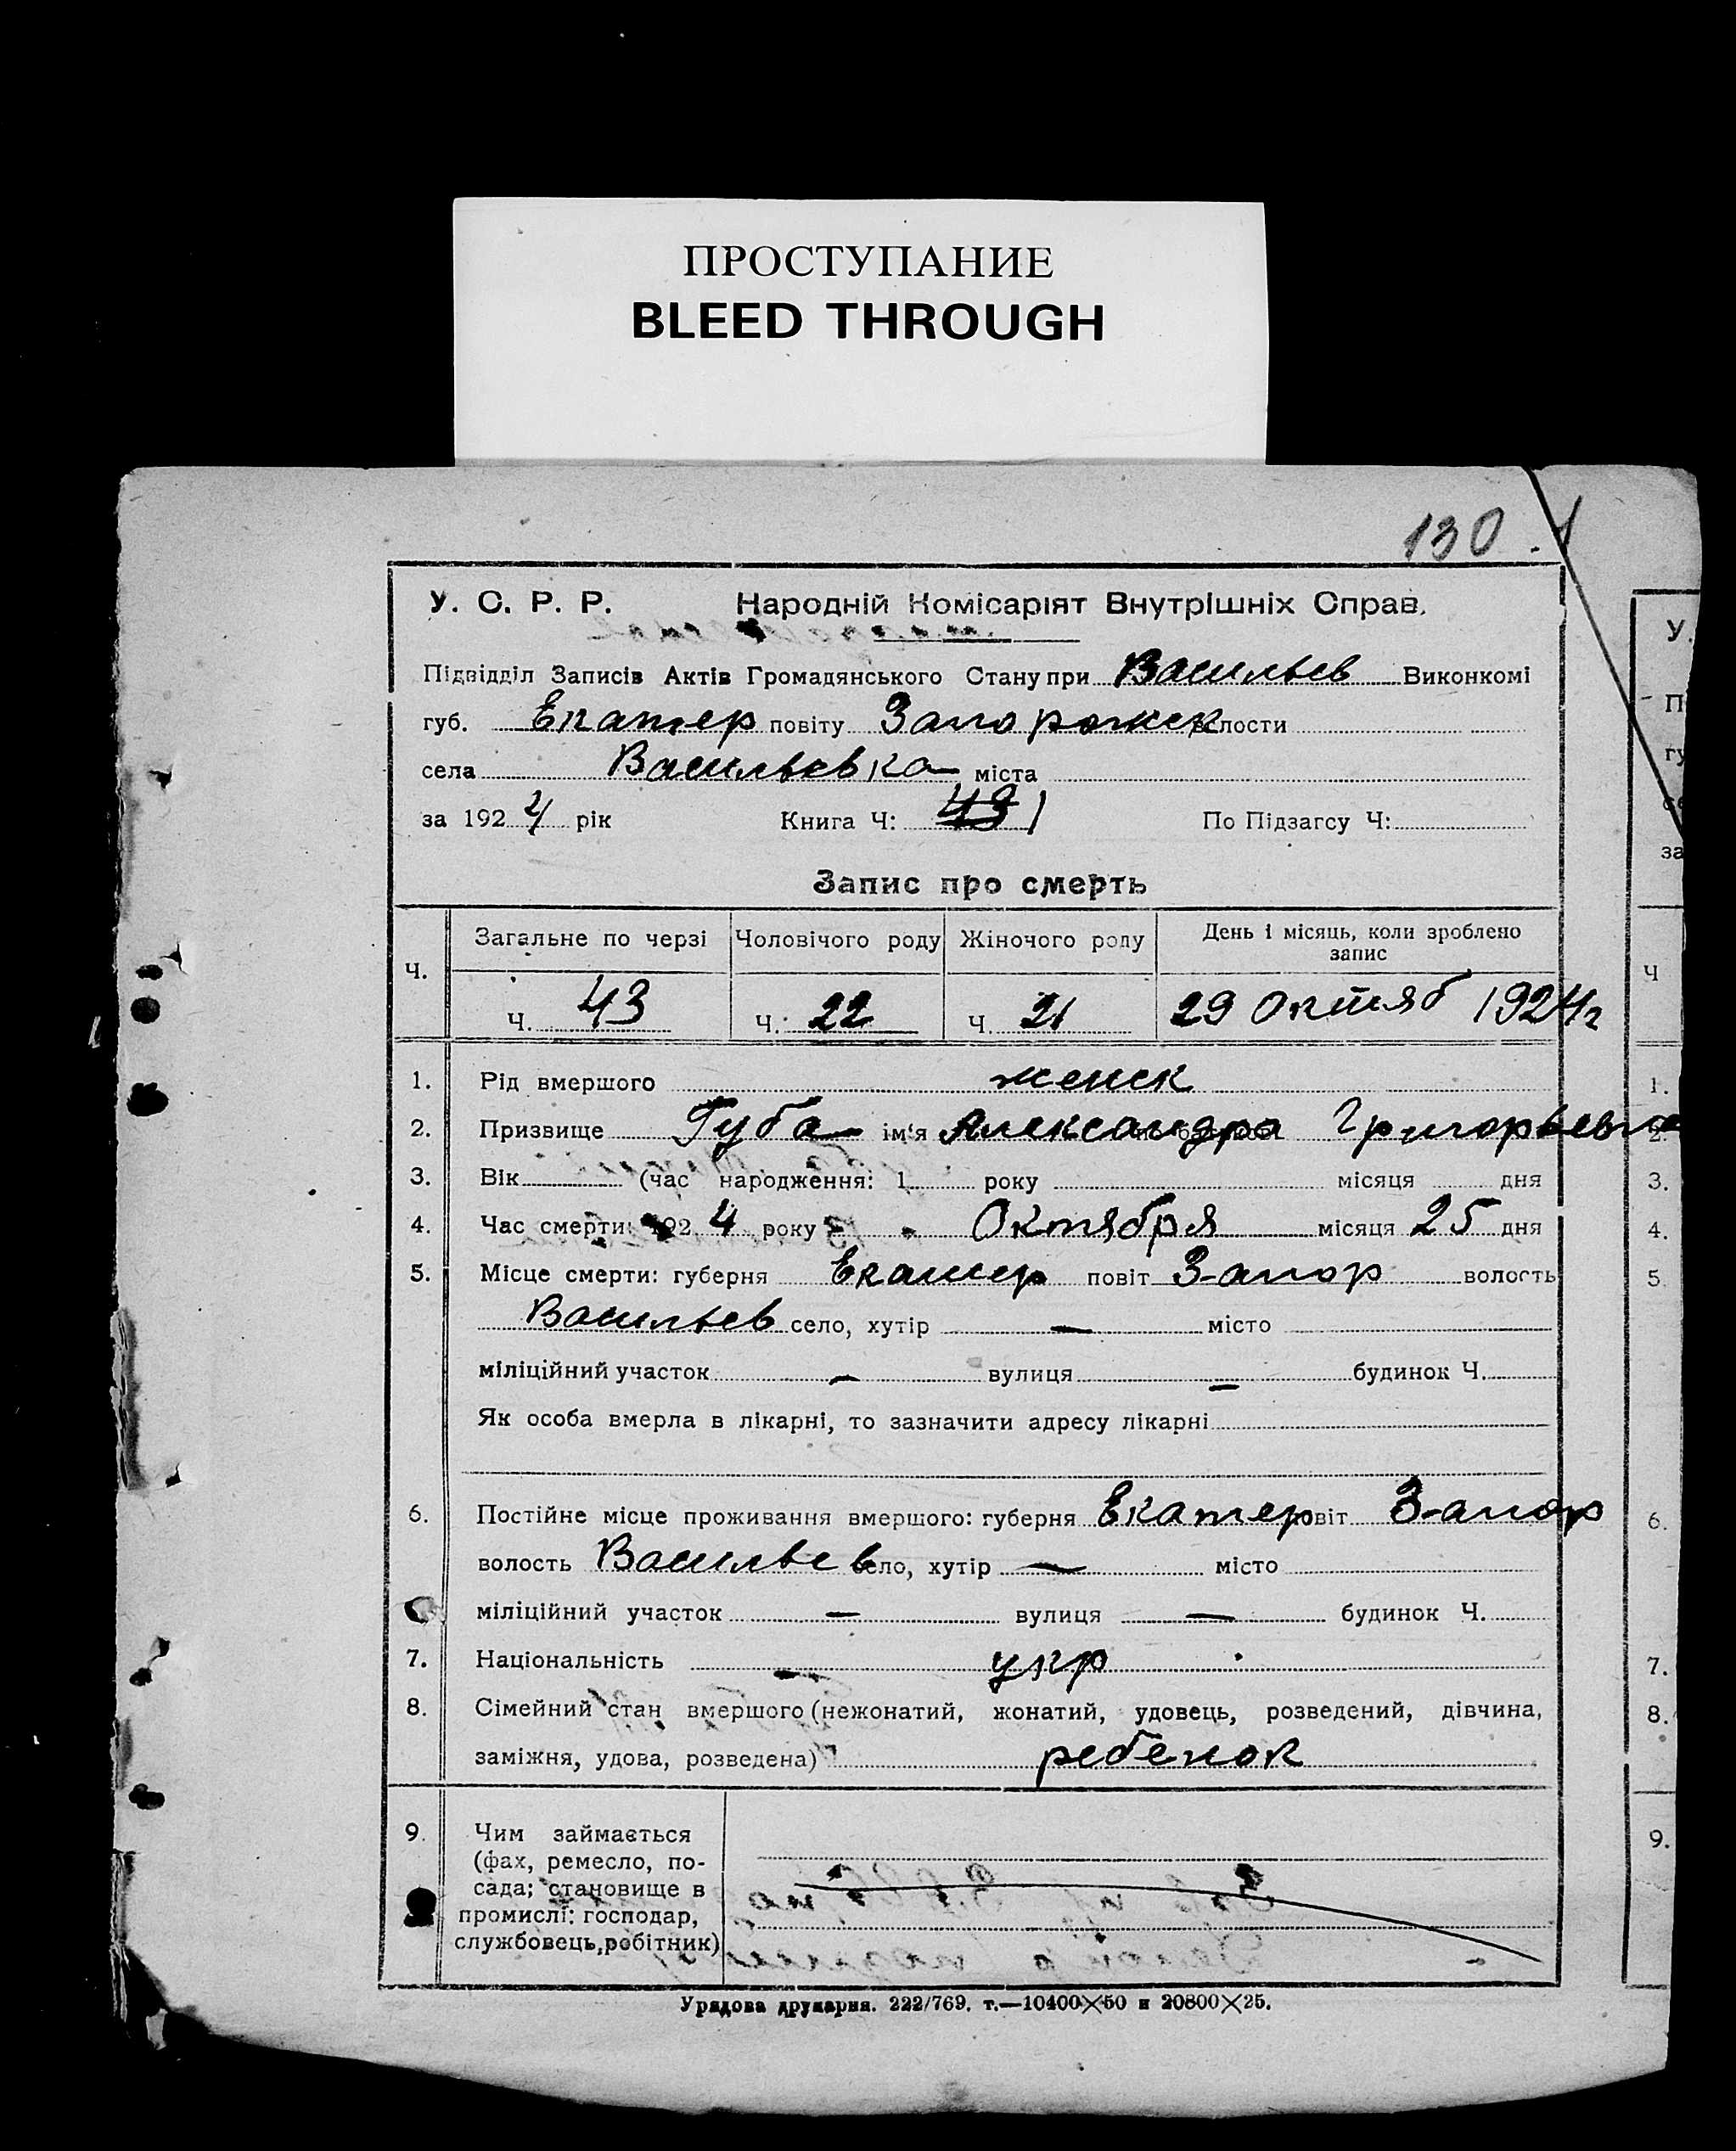 ПРОСТУПАНИЕ
BLEED THROUGH
130
У. С. Р. Р. Народній Комісаріят Внутрішніх Справ.
Підвідділ Записів Актів Громадянського Стану при Васильев Виконкомі
губ. Екатер повіту Запорожск волости
села Васильевка міста
за 1924 рік Книга Ч: 43 1 По Підзагсу Ч:
Запис про смерть
Ч. Загальне по черзі Чоловічого роду Жіночого роду День і місяць, коли зроблено запис
Ч. 43 Ч. 22 Ч. 21 29 Октяб 1924 г
1. Рід вмершого женск
2. Призвище Губа ім'я Александра Григорьевна
3. Вік (час народження: 1 року місяця дня
4. Час смерти: 1924 року Октября місяця 25 дня
5. Місце смерти: губерня Екатер повіт Запор волость
Васильев село, хутір — місто
міліційний участок — вулиця — будинок Ч.
Як особа вмерла в лікарні, то зазначити адресу лікарні
6. Постійне місце проживання вмершого: губерня Екатер повіт Запор
волость Васильев село, хутір — місто
міліційний участок — вулиця — будинок Ч.
7. Національність — укр
8. Сімейний стан вмершого (нежонатий, жонатий, удовець, розведений, дівчина,
заміжня, удова, розведена) ребенок
9. Чим займається
(фах, ремесло, по-
сада; становище в
промислі: господар,
службовець, робітник)
Урядова друкарня. 222/769. т.—10400×50 и 20800×25.
У.
П
гу
се
за
Ч
1.
2.
3.
4.
5.
6.
7.
8.
9.